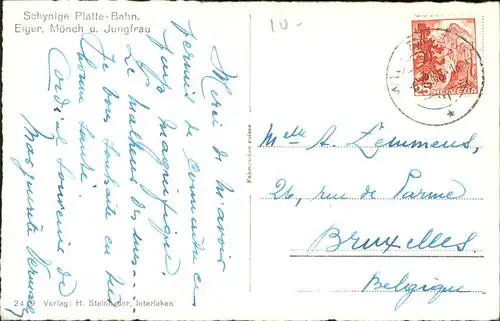 Schynige Platte-Bahn.
Eiger, Mönch u. Jungfrau
10-
Merci de m'avoir
permis de connaître ces
pays magnifiques.
Le malheur des uns...
Je vous souhaite en
bonne santé.
Cordial souvenir de
Marguerite
HELVETIA
Fabrication suisse
Melle A. Lemmens,
26, rue de Parme
Bruxelles
Belgique
24 Verlag: H. Steinhauer, Interlaken